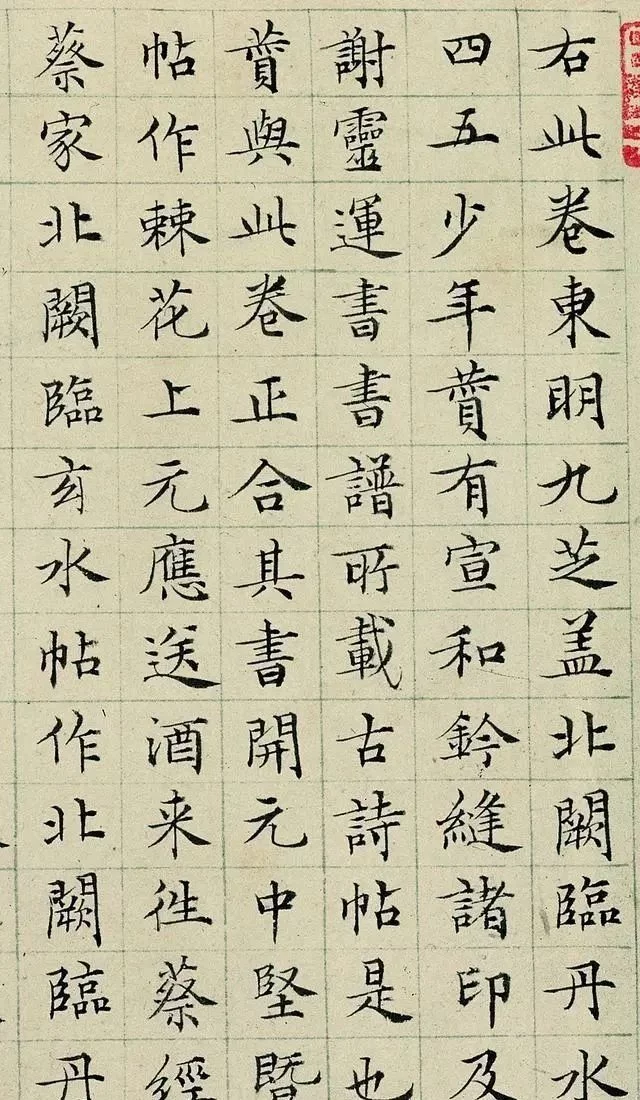 右此卷東明九芝盖北闕臨丹水
四五少年賷有宣和鈐縫諸印及
謝靈運書書譜所載古詩帖是也
賷與此卷正合其書開元中堅暨
帖作棘花上元應送酒来往蔡經
蔡家北闕臨玄水帖作北闕臨丹